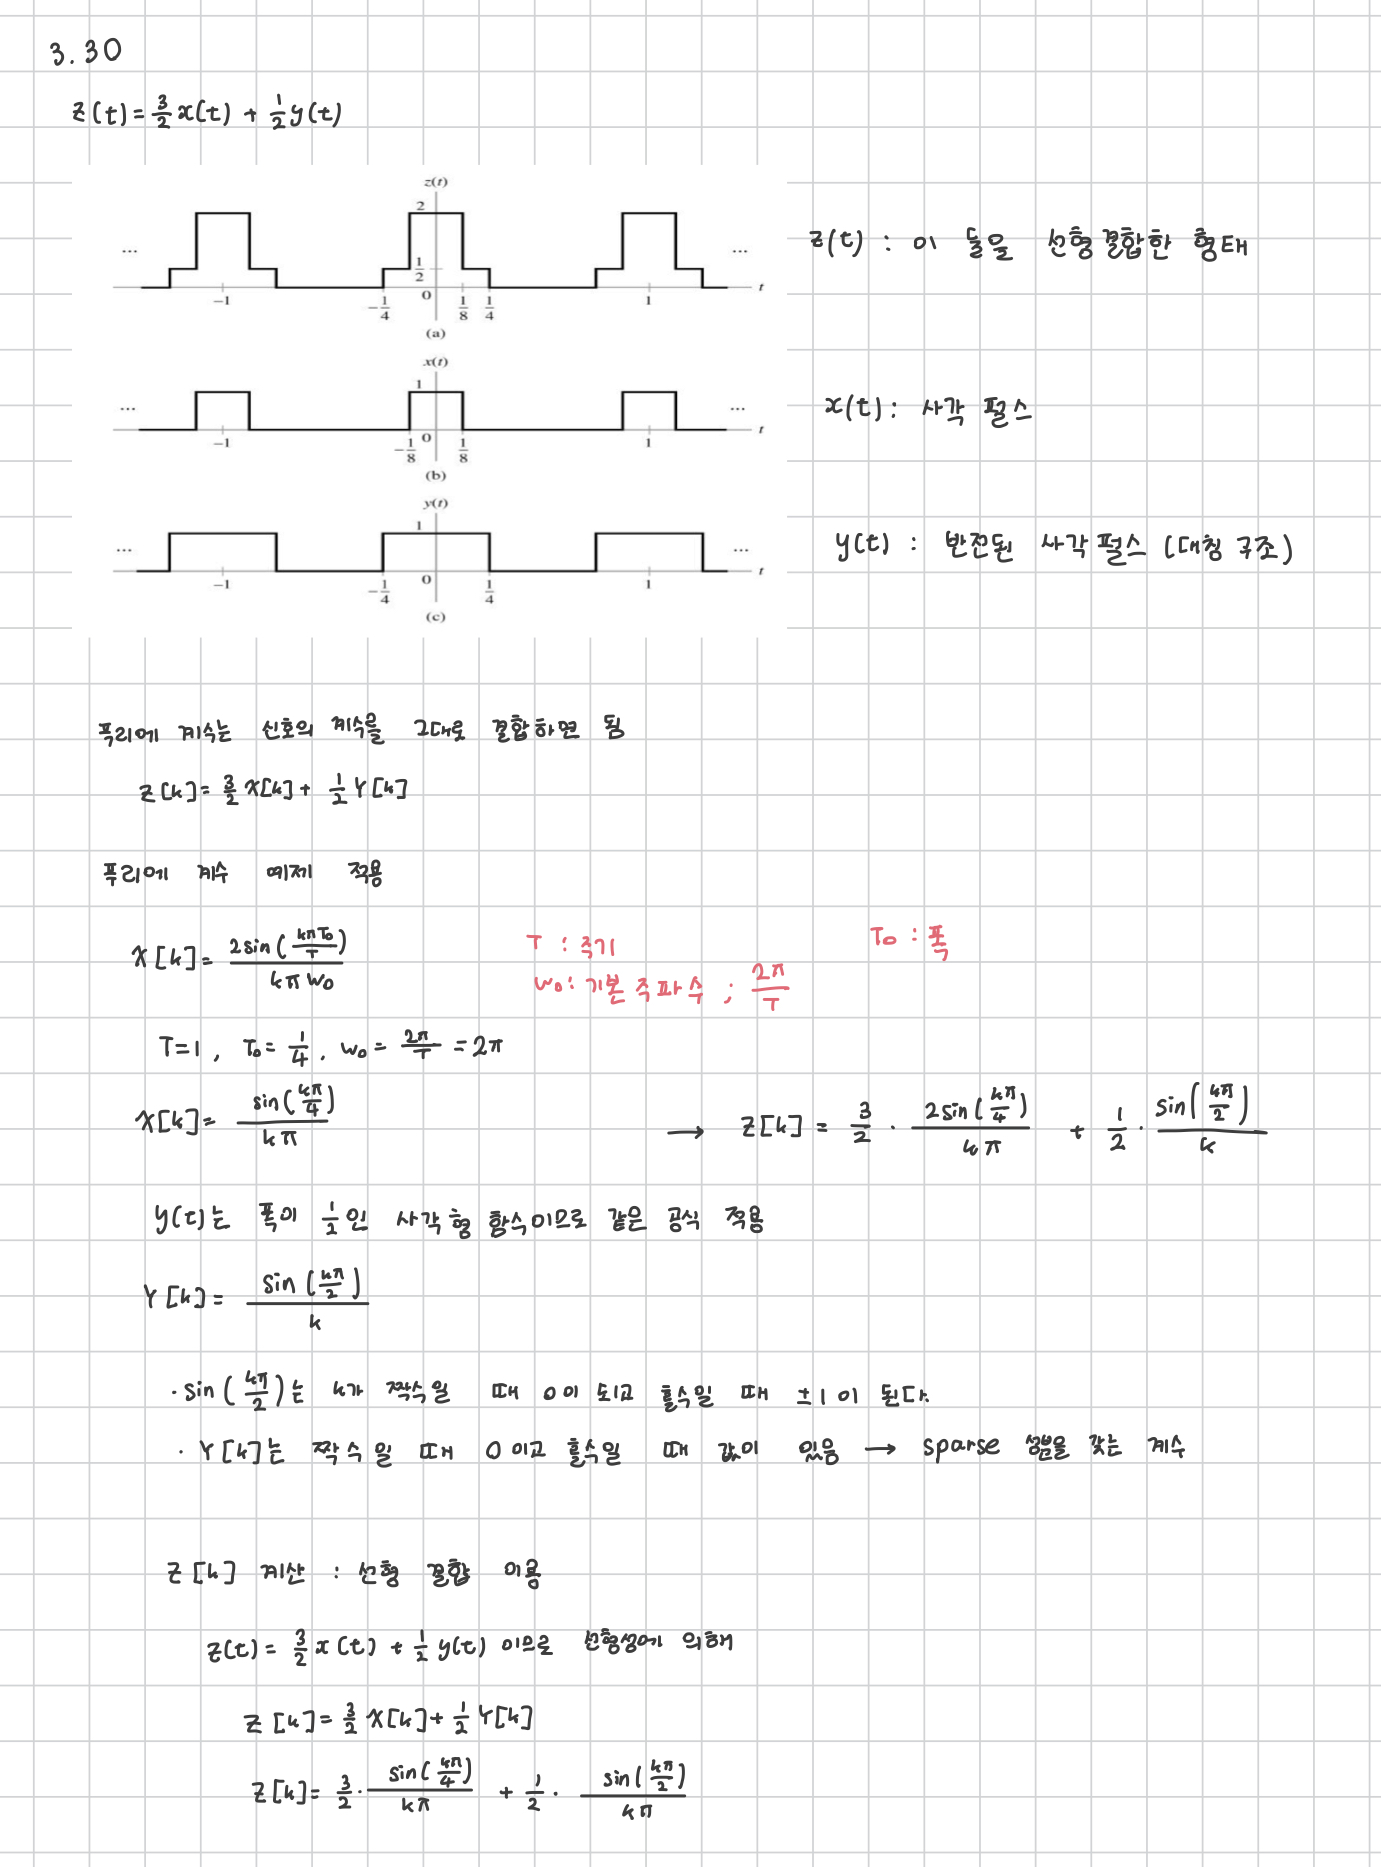 3.30
z(t) = 3/2 x(t) + 1/2 y(t)
z(t)
2
1/2
0
... -1 -1/4 1/8 1/4 1 t ...
(a)
z(t) : 이 둘을 선형결합한 형태
x(t)
1
0
... -1 -1/8 1/8 1 t ...
(b)
x(t) : 사각 펄스
y(t)
1
0
... -1 -1/4 1/4 1 t ...
(c)
y(t) : 반전된 사각펄스 (대칭 구조)
푹리에 계수는 신호의 계수를 그대로 결합하면 됨
Z[k] = 3/2 X[k] + 1/2 Y[k]
푸리에 계수 예제 적용
X[k] = 2sin(kπT₀/T) / kπw₀
T : 주기
w₀ : 기본주파수 ; 2π/T
T₀ : 폭
T=1, T₀ = 1/4, w₀ = 2π/T = 2π
X[k] = sin(kπ/4) / kπ
→ Z[k] = 3/2 · 2sin(kπ/4) / kπ + 1/2 · sin(kπ/2) / k
y(t)는 폭이 1/2인 사각형 함수이므로 같은 공식 적용
Y[k] = sin(kπ/2) / k
· sin(kπ/2)는 k가 짝수일 때 0이 되고 홀수일 때 ±1이 된다.
· Y[k]는 짝수일 때 0이고 홀수일 때 값이 있음 → sparse 성분을 갖는 계수
Z[k] 계산 : 선형 결합 이용
z(t) = 3/2 x(t) + 1/2 y(t) 이므로 선형성에 의해
Z[k] = 3/2 X[k] + 1/2 Y[k]
Z[k] = 3/2 · sin(kπ/4) / kπ + 1/2 · sin(kπ/2) / kπ